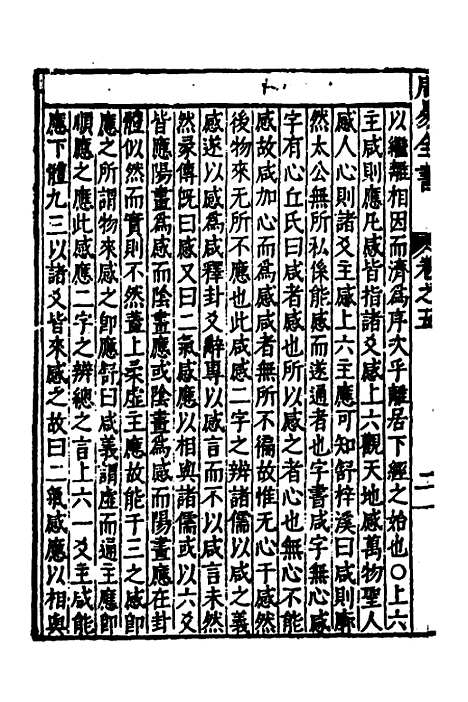 周易全書 卷之五 二一
以繼無相因而濟爲序大乎離居下經之始也○上六
主咸則應凡感皆指諸爻感上六觀天地感萬物聖人
感人心則諸爻主感上六主應可知舒梓溪曰咸則廓
然太公無所私係能感而遂通者也字書咸字無心感
字有心丘氏曰咸者感也所以感之者心也無心不能
感故咸加心而爲感咸者無所不徧故惟无心于感然
後物來无所不應也此咸感二字之辨諸儒以咸之義
感遂以感爲咸釋卦爻辭專以感言而不以咸言未然
然彖傳旣曰感又曰二氣感應以相與諸儒或以六爻
皆應陽畫爲感而陰畫應或陰畫爲感而陽畫應在卦
體似然而實則不然蓋上柔虛主應故能于三之感卽
應之所謂物來感之卽應舒曰咸義謂虛而通主應卽
順應之應此感應二字之辨總之言上六一爻主咸能
應下體九三以諸爻皆來感之故曰二氣感應以相與